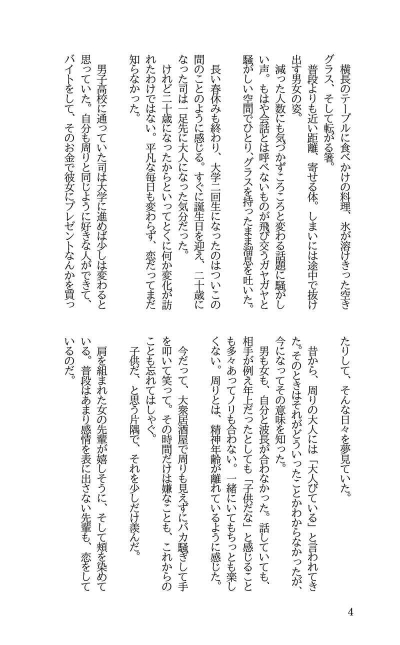 横長のテーブルに食べかけの料理、氷が溶けきった空き
グラス、そして転がる箸。
普段よりも近い距離、寄せる体。しまいには途中で抜け
出す男女の姿。
減った人数にも気づかずころころと変わる話題に騒がし
い声。もはや会話とは呼べないものが飛び交うガヤガヤと
騒がしい空間でひとり、グラスを持ったまま溜息を吐いた。
長い春休みも終わり、大学二回生になったのはついこの
間のことのように感じる。すぐに誕生日を迎え、二十歳に
なった司は一足先に大人になった気分だった。
けれど二十歳になったからといってとくに何か変化が訪
れたわけではない。平凡な毎日も変わらず、恋だってまだ
知らなかった。
男子高校に通っていた司は大学に進めば少しは変わると
思っていた。自分も周りと同じように好きな人ができて、
バイトをして、そのお金で彼女にプレゼントなんかを買っ
たりして、そんな日々を夢見ていた。
昔から、周りの大人には「大人びている」と言われてき
た。そのときはそれがどういったことかわからなかったが、
今になってその意味を知った。
男も女も、自分と波長が合わなかった。話していても、
相手が例え年上だったとしても「子供だな」と感じること
も多々あってノリも合わない。一緒にいてもちっとも楽し
くない。周りとは、精神年齢が離れているように感じた。
今だって、大衆居酒屋で周りも見えずにバカ騒ぎして手
を叩いて笑って。その時間だけは嫌なことも、これからの
ことも忘れてはしゃぐ。
子供だ、と思う片隅で、それを少しだけ羨んだ。
肩を組まれた女の先輩が嬉しそうに、そして頬を染めて
いる。普段はあまり感情を表に出さない先輩も、恋をして
いるのだ。
4